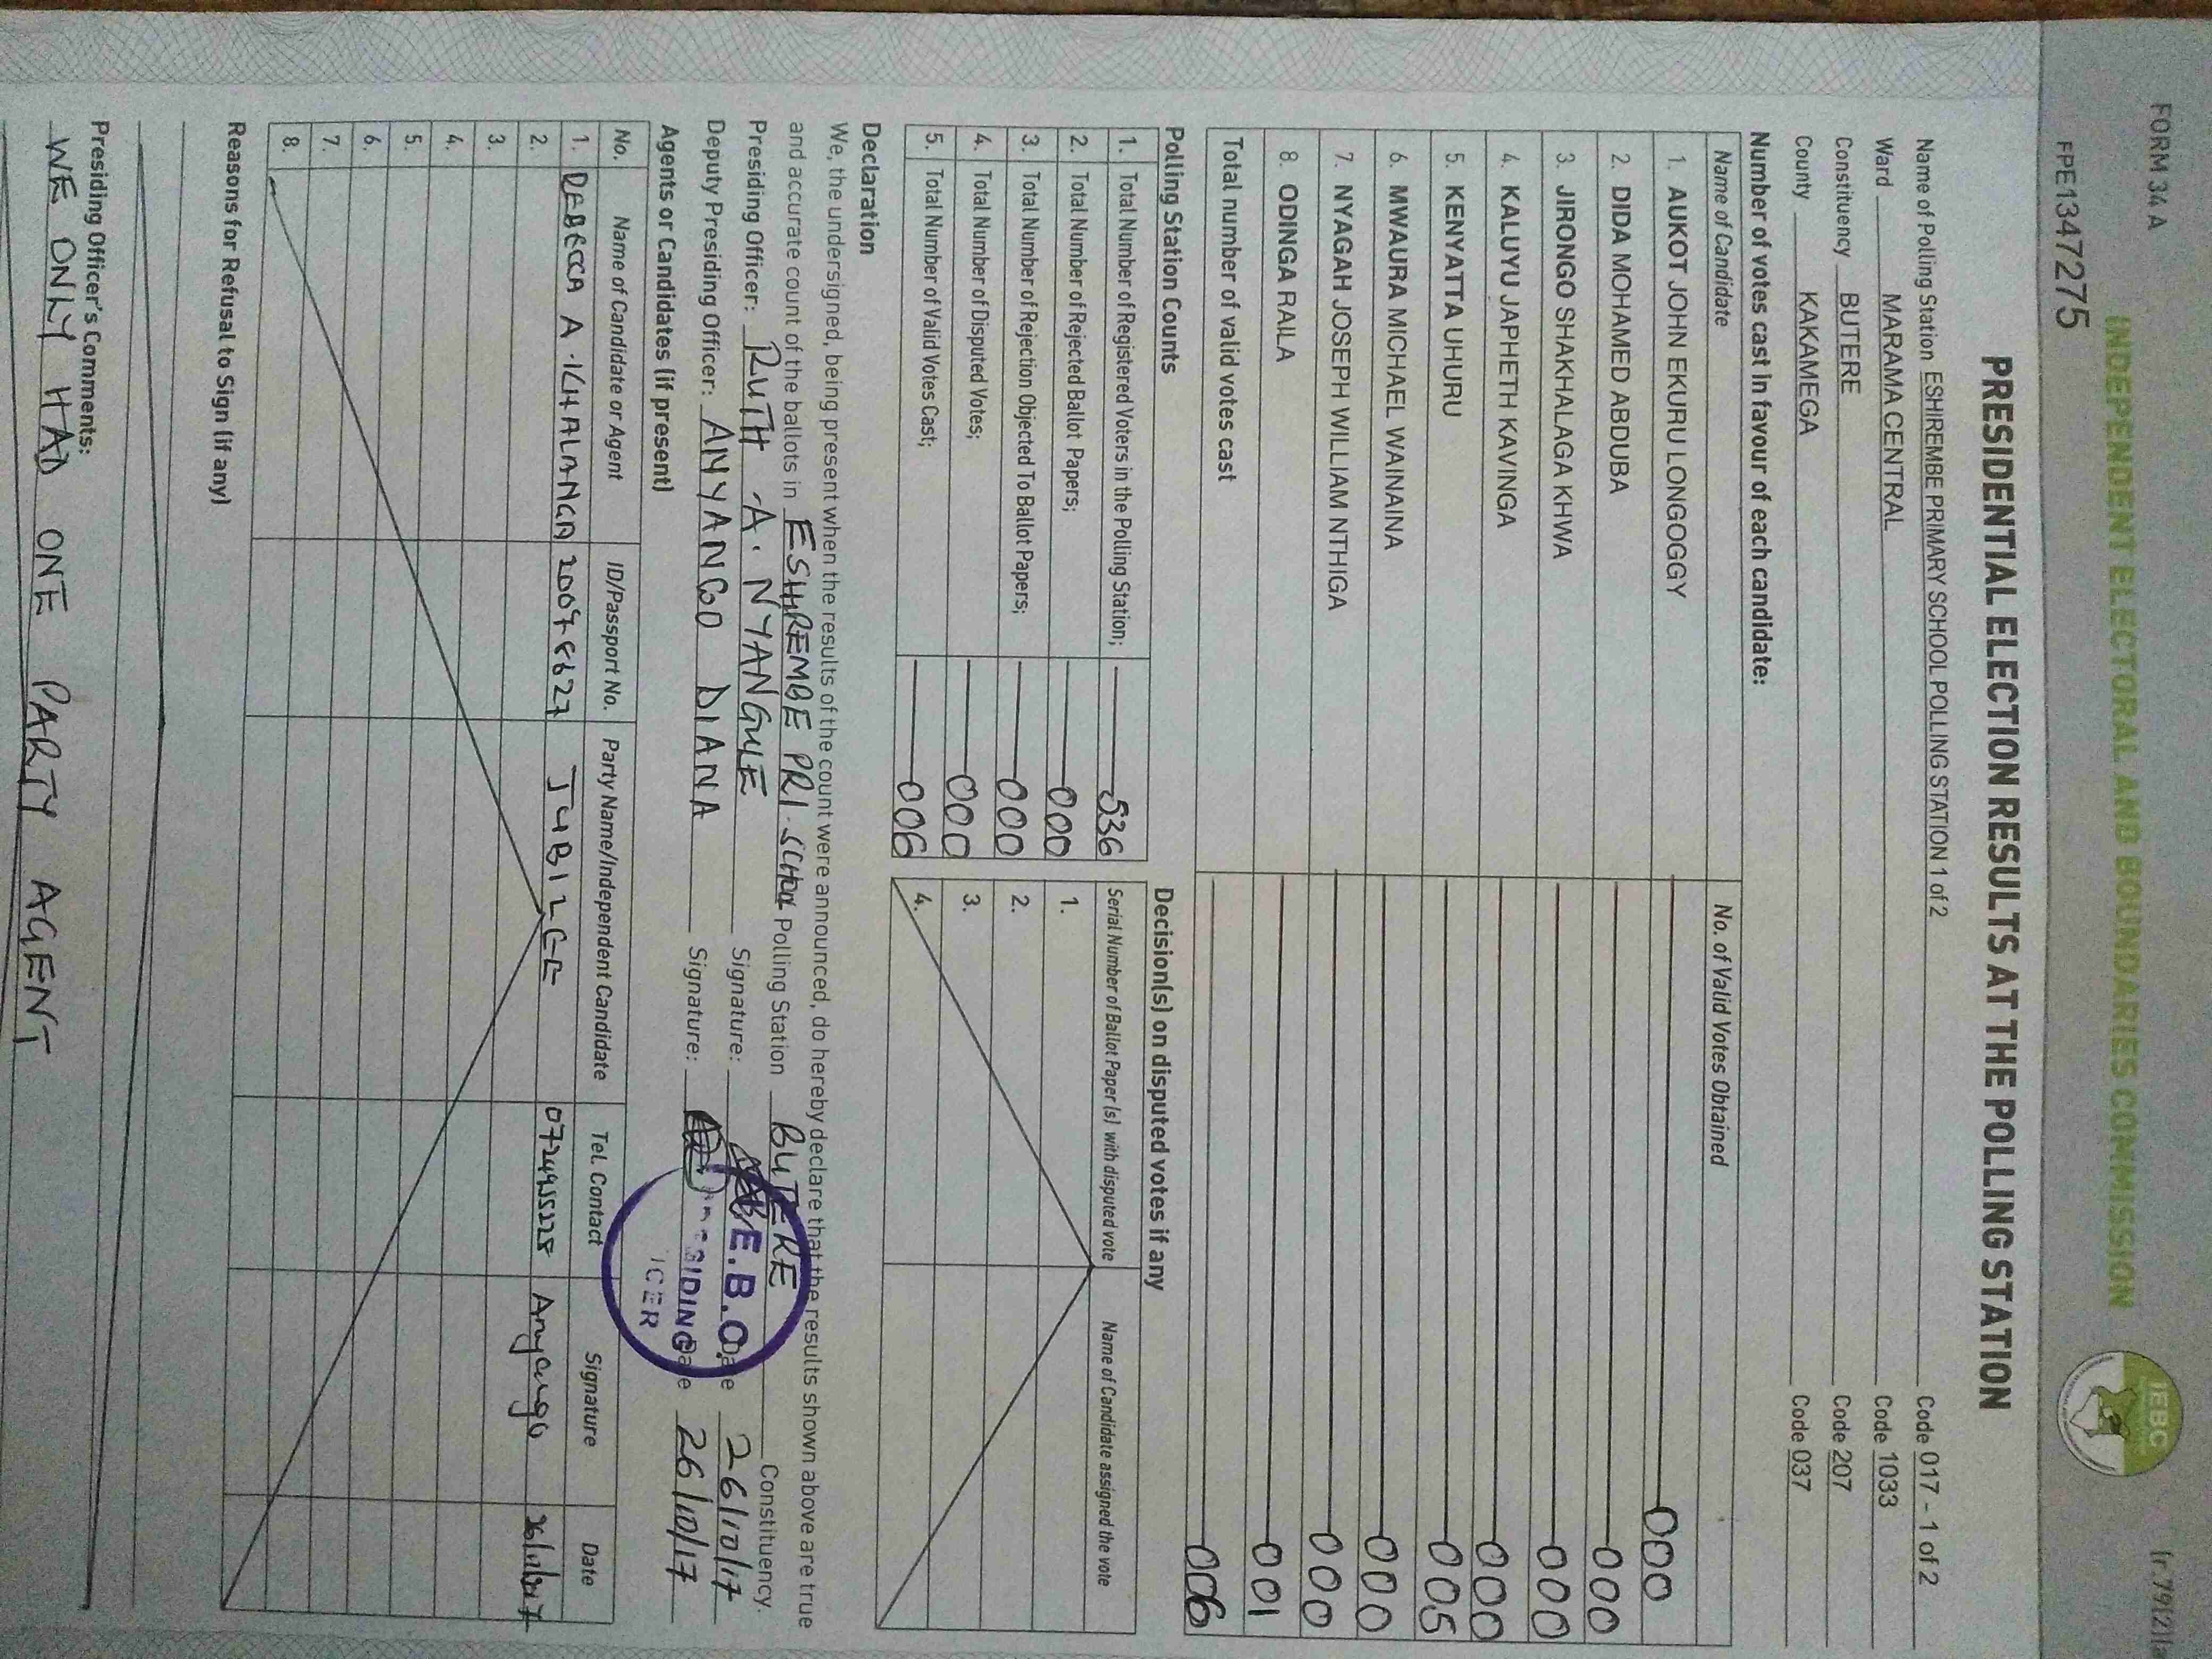 FORM 34 A
(r.79(2)(a
INDEPENDENT ELECTORAL AND BOUNDARIES COMMISSION
IEBC
FPE1347275
PRESIDENTIAL ELECTION RESULTS AT THE POLLING STATION
Name of Polling Station ESHIREMBE PRIMARY SCHOOL POLLING STATION 1 of 2 Code 017 - 1 of 2
Ward MARAMA CENTRAL Code 1033
Constituency BUTERE Code 207
County KAKAMEGA Code 037
Number of votes cast in favour of each candidate:
Name of Candidate No. of Valid Votes Obtained
1. AUKOT JOHN EKURU LONGOGGY 000
2. DIDA MOHAMED ABDUBA 000
3. JIRONGO SHAKHALAGA KHWA 000
4. KALUYU JAPHETH KAVINGA 000
5. KENYATTA UHURU 005
6. MWAURA MICHAEL WAINAINA 000
7. NYAGAH JOSEPH WILLIAM NTHIGA 000
8. ODINGA RAILA 001
Total number of valid votes cast 006
Polling Station Counts
1. Total Number of Registered Voters in the Polling Station; 536
2. Total Number of Rejected Ballot Papers; 000
3. Total Number of Rejection Objected To Ballot Papers; 000
4. Total Number of Disputed Votes; 000
5. Total Number of Valid Votes Cast; 006
Decision(s) on disputed votes if any
Serial Number of Ballot Paper (s) with disputed vote Name of Candidate assigned the vote
1.
2.
3.
4.
Declaration
We, the undersigned, being present when the results of the count were announced, do hereby declare that the results shown above are true
and accurate count of the ballots in ESHIREMBE PRI. SCHOOL Polling Station BUTERE Constituency.
Presiding Officer: RUTH A. NYANGULE Signature: Date 26/10/17
Deputy Presiding Officer: ANYANGO DIANA Signature: Date 26/10/17
E.B.C
SIDING
ICER
Agents or Candidates (if present)
No. Name of Candidate or Agent ID/Passport No. Party Name/Independent Candidate Tel. Contact Signature Date
1. A. JUBILEE 0724955228 Anyango
2.
3.
4.
5.
6.
7.
8.
Reasons for Refusal to Sign (if any)
Presiding Officer's Comments:
WE ONLY HAD ONE PARTY AGENT